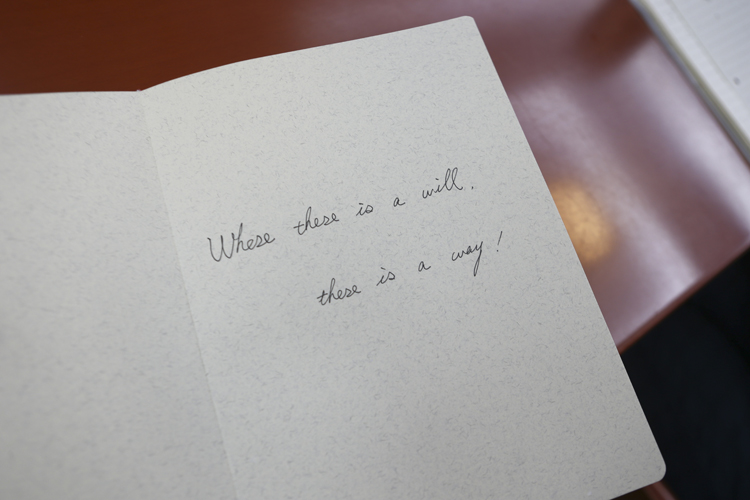 Where there is a will,
there is a way!